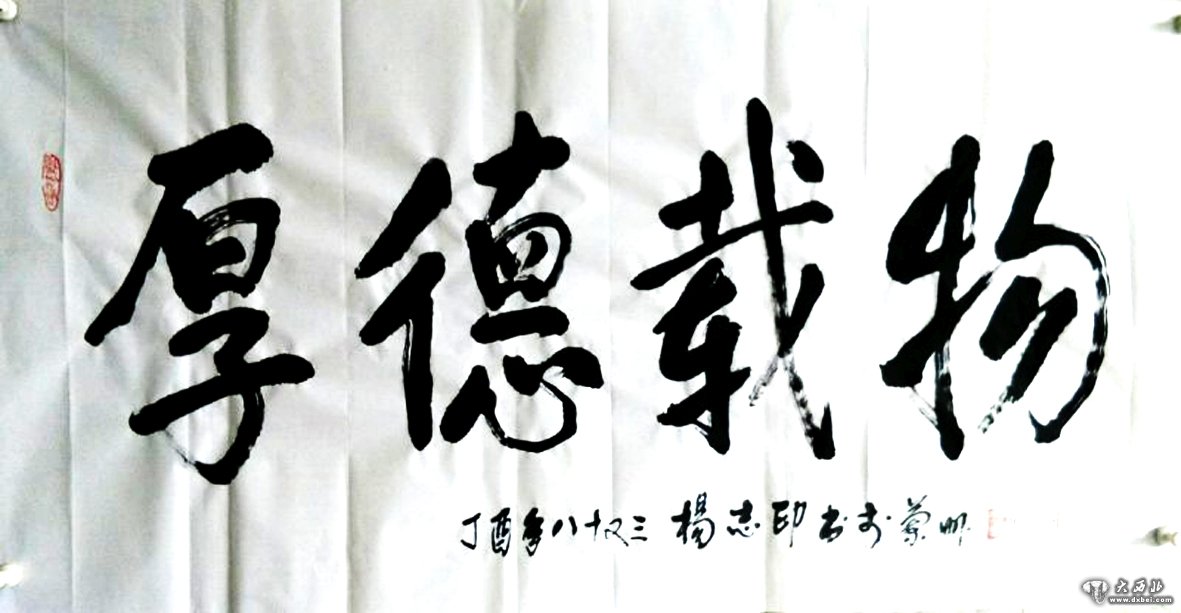 厚德载物
丁酉年八十又三 楊志印书于蘭州
大西北
www.dxbei.com